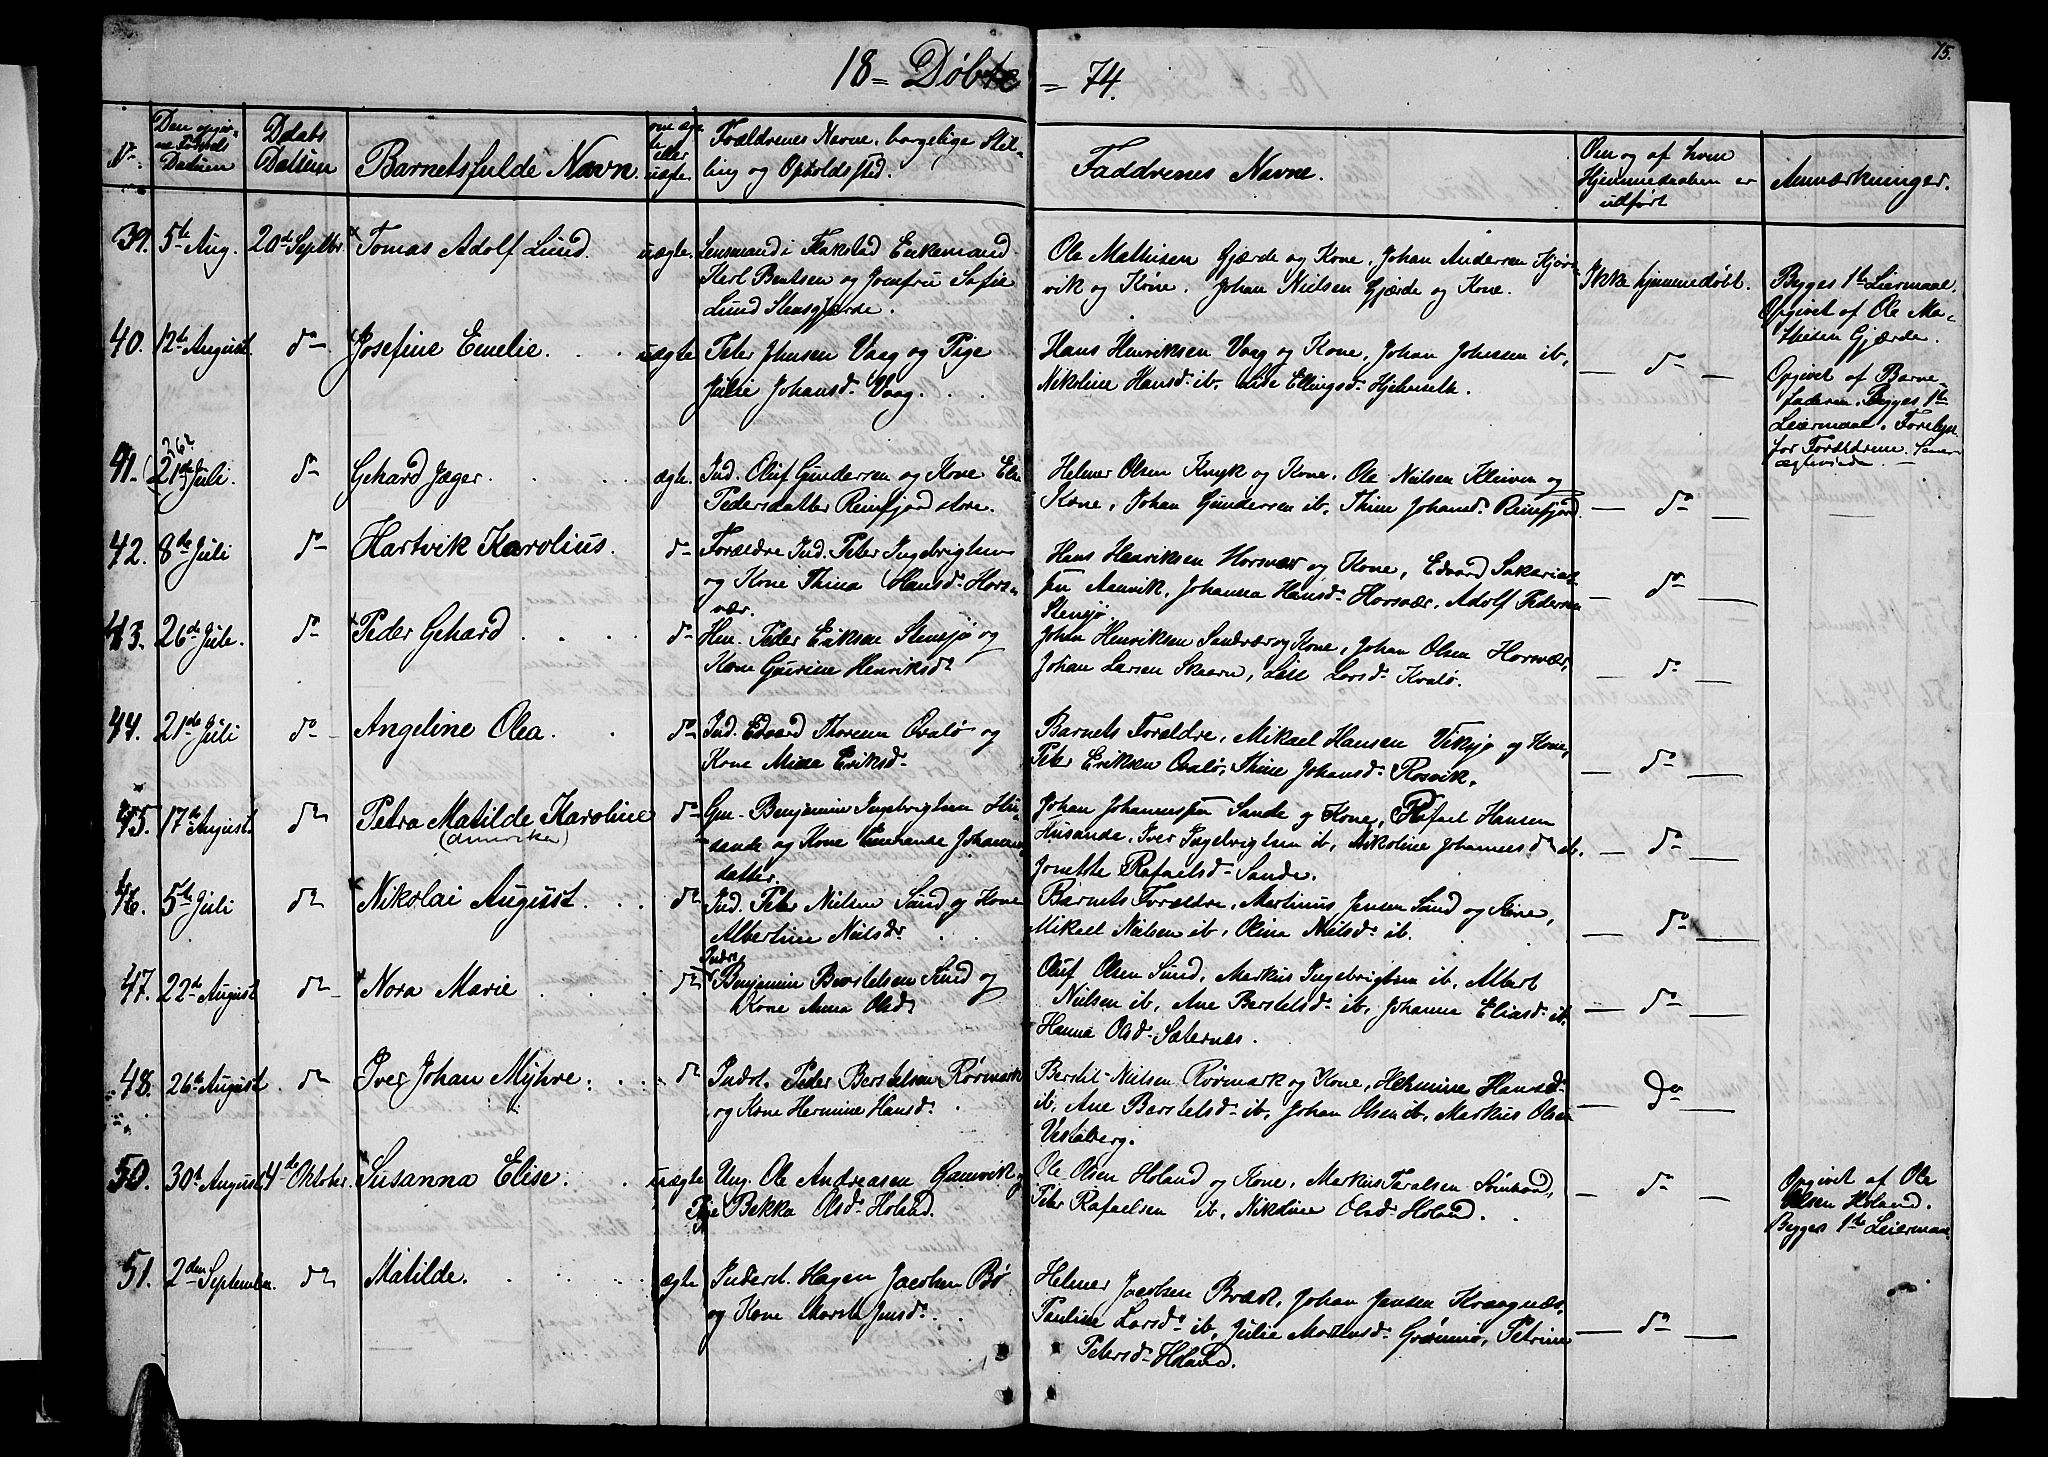 75.
18 = Døbte = 74.
No.
Den opgivne Fødsels Datum
Daabs Datum
Barnets fulde Navn.
om ægte eller uægte.
Forældrenes Navne, borgelige Stilling og Opholdsted.
Faddrenes Navne.
Om og af hvem Hjemmedaaben er udført
Anmærkninger.
39. 5te Aug. 20de Septbr. Tomas Adolf Lund. uægte.
Lensmand i Flakstad Enkemand
Karl Bentsen og Jomfru Sofie
Lund Stensgjærde.
Ole Mathisen Gjærde og Kone, Johan Andersen
vik og Kone. Johan Nielsen Gjærde og Kone.
Ikke hjemmedøbt.
Begges 1ste Leiermaal.
Opgivet af Ole Ma-
thisen Gjærde.
40. 12te August. do Josefine Emelie. uægte
Peter Johnsen Vaag og Pige
Julie Johansd. Vaag.
Hans Henriksen Vaag og Kone, Johan Johnsen ib,
Nikoline Hansd. ib. Lise Ellingsd. Hjelmseth.
do
Opgivet af Barne-
faderen. Begges 1ste
Leiermaal.
for Forældrene.
41. 26?
(21de Juli. do Gehard Jæger. ægte.
Ind. Oluf Gundersen og Kone
Pedersdatter Reinfjord store.
Helmer Olsen Knyk og Kone, Ole Nielsen Kleiven og
Kone, Johan Gundersen ib, Thine Johansd. Reinfjord.
do
42. 8de Juli do Hartvik Karolius. do
Forældre Ind. Peter Ingebrigtsen
og Kone Thina Hansd. Hors-
vær.
Hans Henriksen Horsvær og Kone, Edvard Sakarias-
sen Aanvik, Johanna Hansd. Horsvær, Adolf Pedersen
Stensjø
do
43. 26de Juli. do Peder Gehard do
Hm. Peder Eriksen Stensjø og
Kone Gurine Henriksd.
Johan Henriksen Sandvær og Kone, Johan Olsen Horsvær,
Johan Larsen Skaarn, Lise Larsd. Kvalø.
do
44. 21de Juli do Angeline Olea. do
Ind. Edvard Thoresen Qvalø og
Kone Mina Eriksd.
Barnets Forældre, Mikael Hansen Viksjø og Kone,
Peter Eriksen Qvalø, Thine Johansd. Rosvik.
do
45. 17de August. do Petra Matilde Karoline do
(Amerika)
Gm. Benjamin Ingebrigtsen Hu-
sande og Kone Johannes
datter.
Johan Johannessen Sande og Kone, Rafael Hansen
Husande, Iver Ingebrigtsen ib, Nikoline Johannesd. ib.
Jonette Rafaelsd. Sande.
do
46. 5te Juli do Nikolai August. do
Ind. Peter Nielsen Sund og Kone
Albertine Nielsd.
Barnets Forældre, Martinus Jensen Sund og Kone,
Mikael Nielsen ib, Olina Nielsd. ib.
do
47. 22de August do Nora Marie do
Inderst.
Benjamin Berstelsen Sund og
Kone Anna Olsd.
Oluf Olsen Sund, Markus Ingebrigtsen ib, Albert
Nielsen ib, Ane Berstelsd. ib, Johanna Eliasd. ib.
Hanna Olsd. Sæternes.
do
48. 26de August do Iver Johan Myhre. do
Inderst. Peder Berstelsen Rørmark
og Kone Hermine Hansd.
Berstel Nielsen Rørmark og Kone, Hermine Hansd.
ib, Ane Berstelsd. ib, Johan Olsen ib, Markus Olsen
Vestaberg.
do
50. 30te August 4de Oktober. Susanna Elise. uægte
Ung. Ole Andreasen Gamvik og
Pige Bekka Olsd. Holand.
Ole Olsen Holand og Kone, Markus Taralsen
Peter Rafaelsen ib, Nikoline Olsd. Holand.
do
Opgivet af Ole
Olsen Holand.
Begges 1ste Leiermaal
51. 2den September. do Matilde. ægte
Inderst. Hagen Jacobsen Bø
og Kone
Helmer Jacobsen Bræk, Johan Jensen Kraagnæs,
Pauline Larsd. ib, Julie Mortensd. Grønmo, Petrine
Petersd. Holand.
do